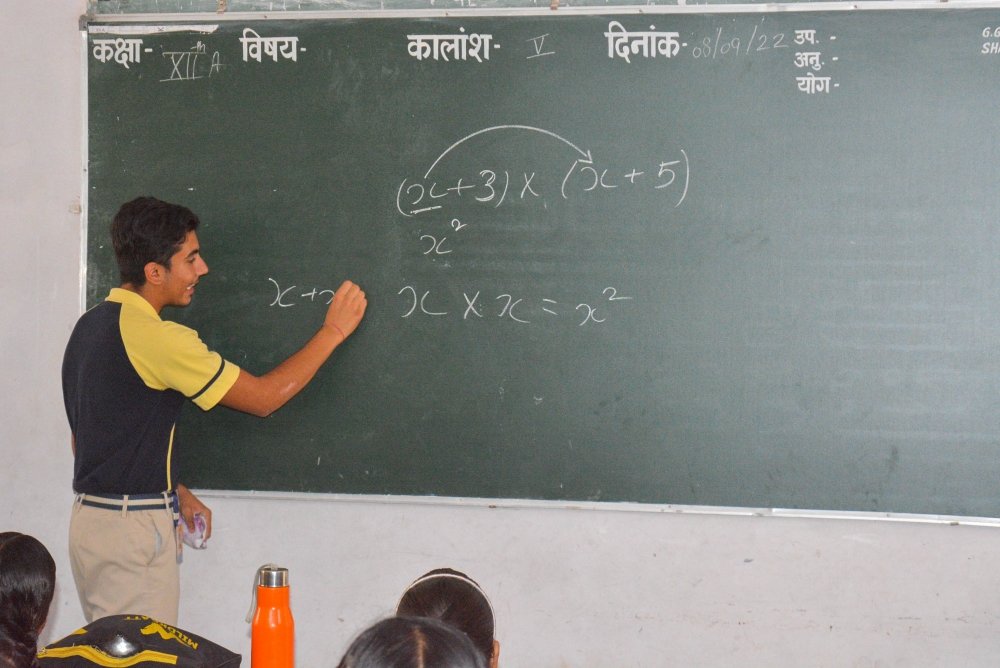 कक्षा- XIIth A विषय- कालांश- V दिनांक- 08/09/22 उप. -
अनु. -
योग -
G.G
SH
(x+3) X (x+5)
x²
x+x
x X x = x²